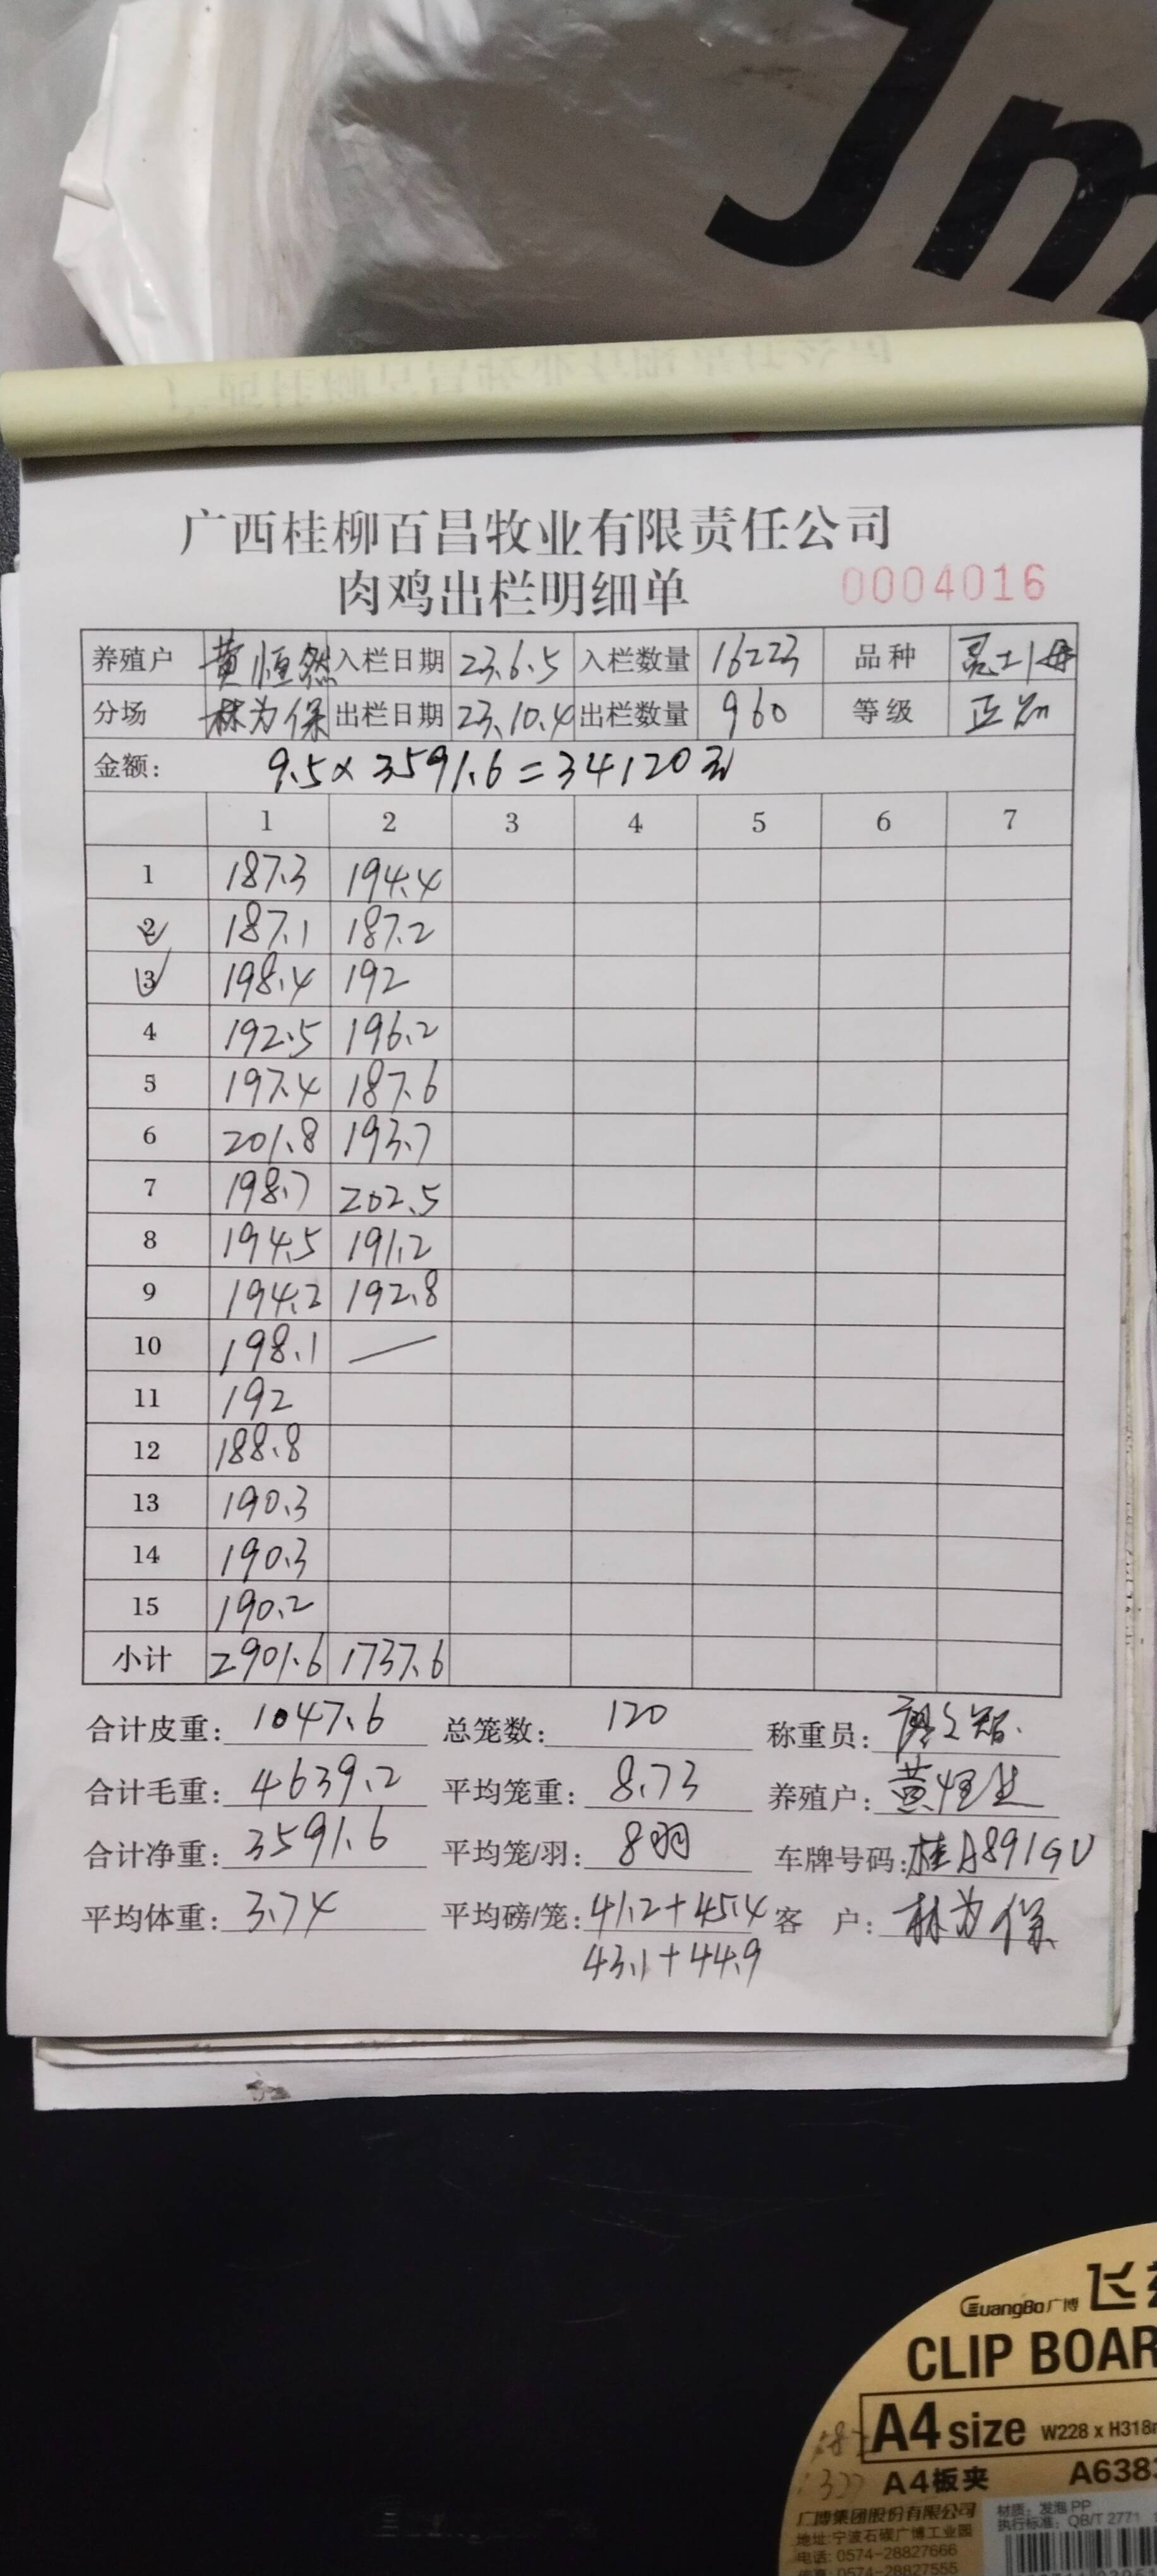 Jm
广西桂柳百昌牧业有限责任公司
肉鸡出栏明细单 0004016
养殖户 黄恒然 入栏日期 23.6.5 入栏数量 16223 品种
分场 林为保 出栏日期 23.10.4 出栏数量 960 等级 正品
金额: 9.5×3591.6=34120元
1 2 3 4 5 6 7
1 187.3 194.4
2 187.1 187.2
3 198.4 192
4 192.5 196.2
5 197.4 187.6
6 201.8 193.7
7 198.7 202.5
8 194.5 191.2
9 194.2 192.8
10 198.1 —
11 192
12 188.8
13 190.3
14 190.3
15 190.2
小计 2901.6 1737.6
合计皮重: 1047.6 总笼数: 120 称重员:
合计毛重: 4639.2 平均笼重: 8.73 养殖户: 黄
合计净重: 3591.6 平均笼/羽: 8羽 车牌号码: 桂A891GU
平均体重: 3.74 平均磅/笼: 41.2+45.4 客户: 林为保
43.1+44.9
GuangBo广博 飞
CLIP BOAR
A4 size W228 x H318
A4板夹 A638
广博集团股份有限公司 材质: 发泡 PP
地址:宁波石碶广博工业园 执行标准: QB/T 2771
电话: 0574-28827666
0574-28827555